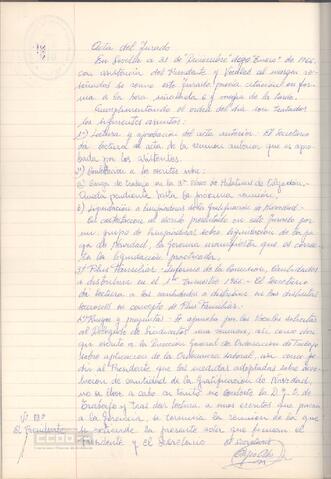 Acta del Jurado
En Sevilla a 31 de "Diciembre" digo "Enero" de 1966.
con asistencia del Presidente y Vocales al margen re-
señados se reune este Jurado previa citación en for-
ma a la hora señalada 6 y media de la tarde.
Cumplimentando el orden del día son tratados
los siguientes asuntos:
1º) Lectura y aprobación del acta anterior.- El Secretario
da lectura al acta de la reunión anterior que es apro-
bada por los asistentes.
2º) Contestación a los escritos
a) Carga de trabajo en la 3ª
Queda pendiente hasta la próxima reunión.
b) Liquidación a limpiadoras de la gratificación de Navidad.-
En contestación al escrito presentado en este Jurado por
un grupo de limpiadoras sobre liquidación de la pa-
ga de Navidad, la Gerencia manifiesta que es correc-
ta la liquidación practicada.
3º) Plus Familiar.- Informe de la Comisión, Cantidades
a distribuir en el 1er Trimestre 1966.- El Secretario
da lectura a las cantidades a distribuir en los distintos
en concepto de Plus Familiar.
4º) Ruegos y preguntas.- Se aprueba por los Vocales solicitar
al Delegado de Sindicatos una reunión, así como ele-
var escrito a la Dirección General de Ordenación de Trabajo
sobre aplicación de la Ordenanza Laboral, así como pe-
dir al Presidente que las medidas adoptadas sobre
de cantidad de la Gratificación de Navidad,
no se lleve a cabo en tanto no conteste la D. G. de
Trabajo y tras dar lectura a unos escritos que pasan
a la Gerencia, se termina la reunión de la que
se extiende la presente acta que firman el
Presidente y el Secretario
Vº Bº
El Presidente
El Secretario
CCOO